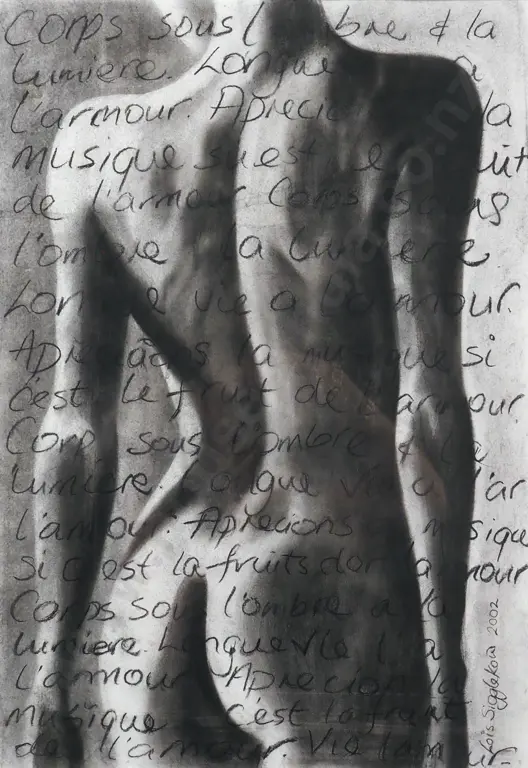 Corps sous l' bre & la
lumiere. Longue a
l'armour. Aprecie la
musique suest le uit
de l'armour Corps sous
l'ombre la Lumiere
Lon e vie a l'armour.
Aprecions la musique si
c'est le fruit de l'armour.
Corp sous l'ombre & la
Lumiere. Longue vie a l'ar
l'amour. Aprecions musique
si c'est la fruits dor la mour
Corps Sous l'ombre a la
lumiere. Longue Vie l a
l'armour Aprecion la
musique c'est la fruit
de l'armour. Vie l'am ur.
Lois Sigglekow 2002